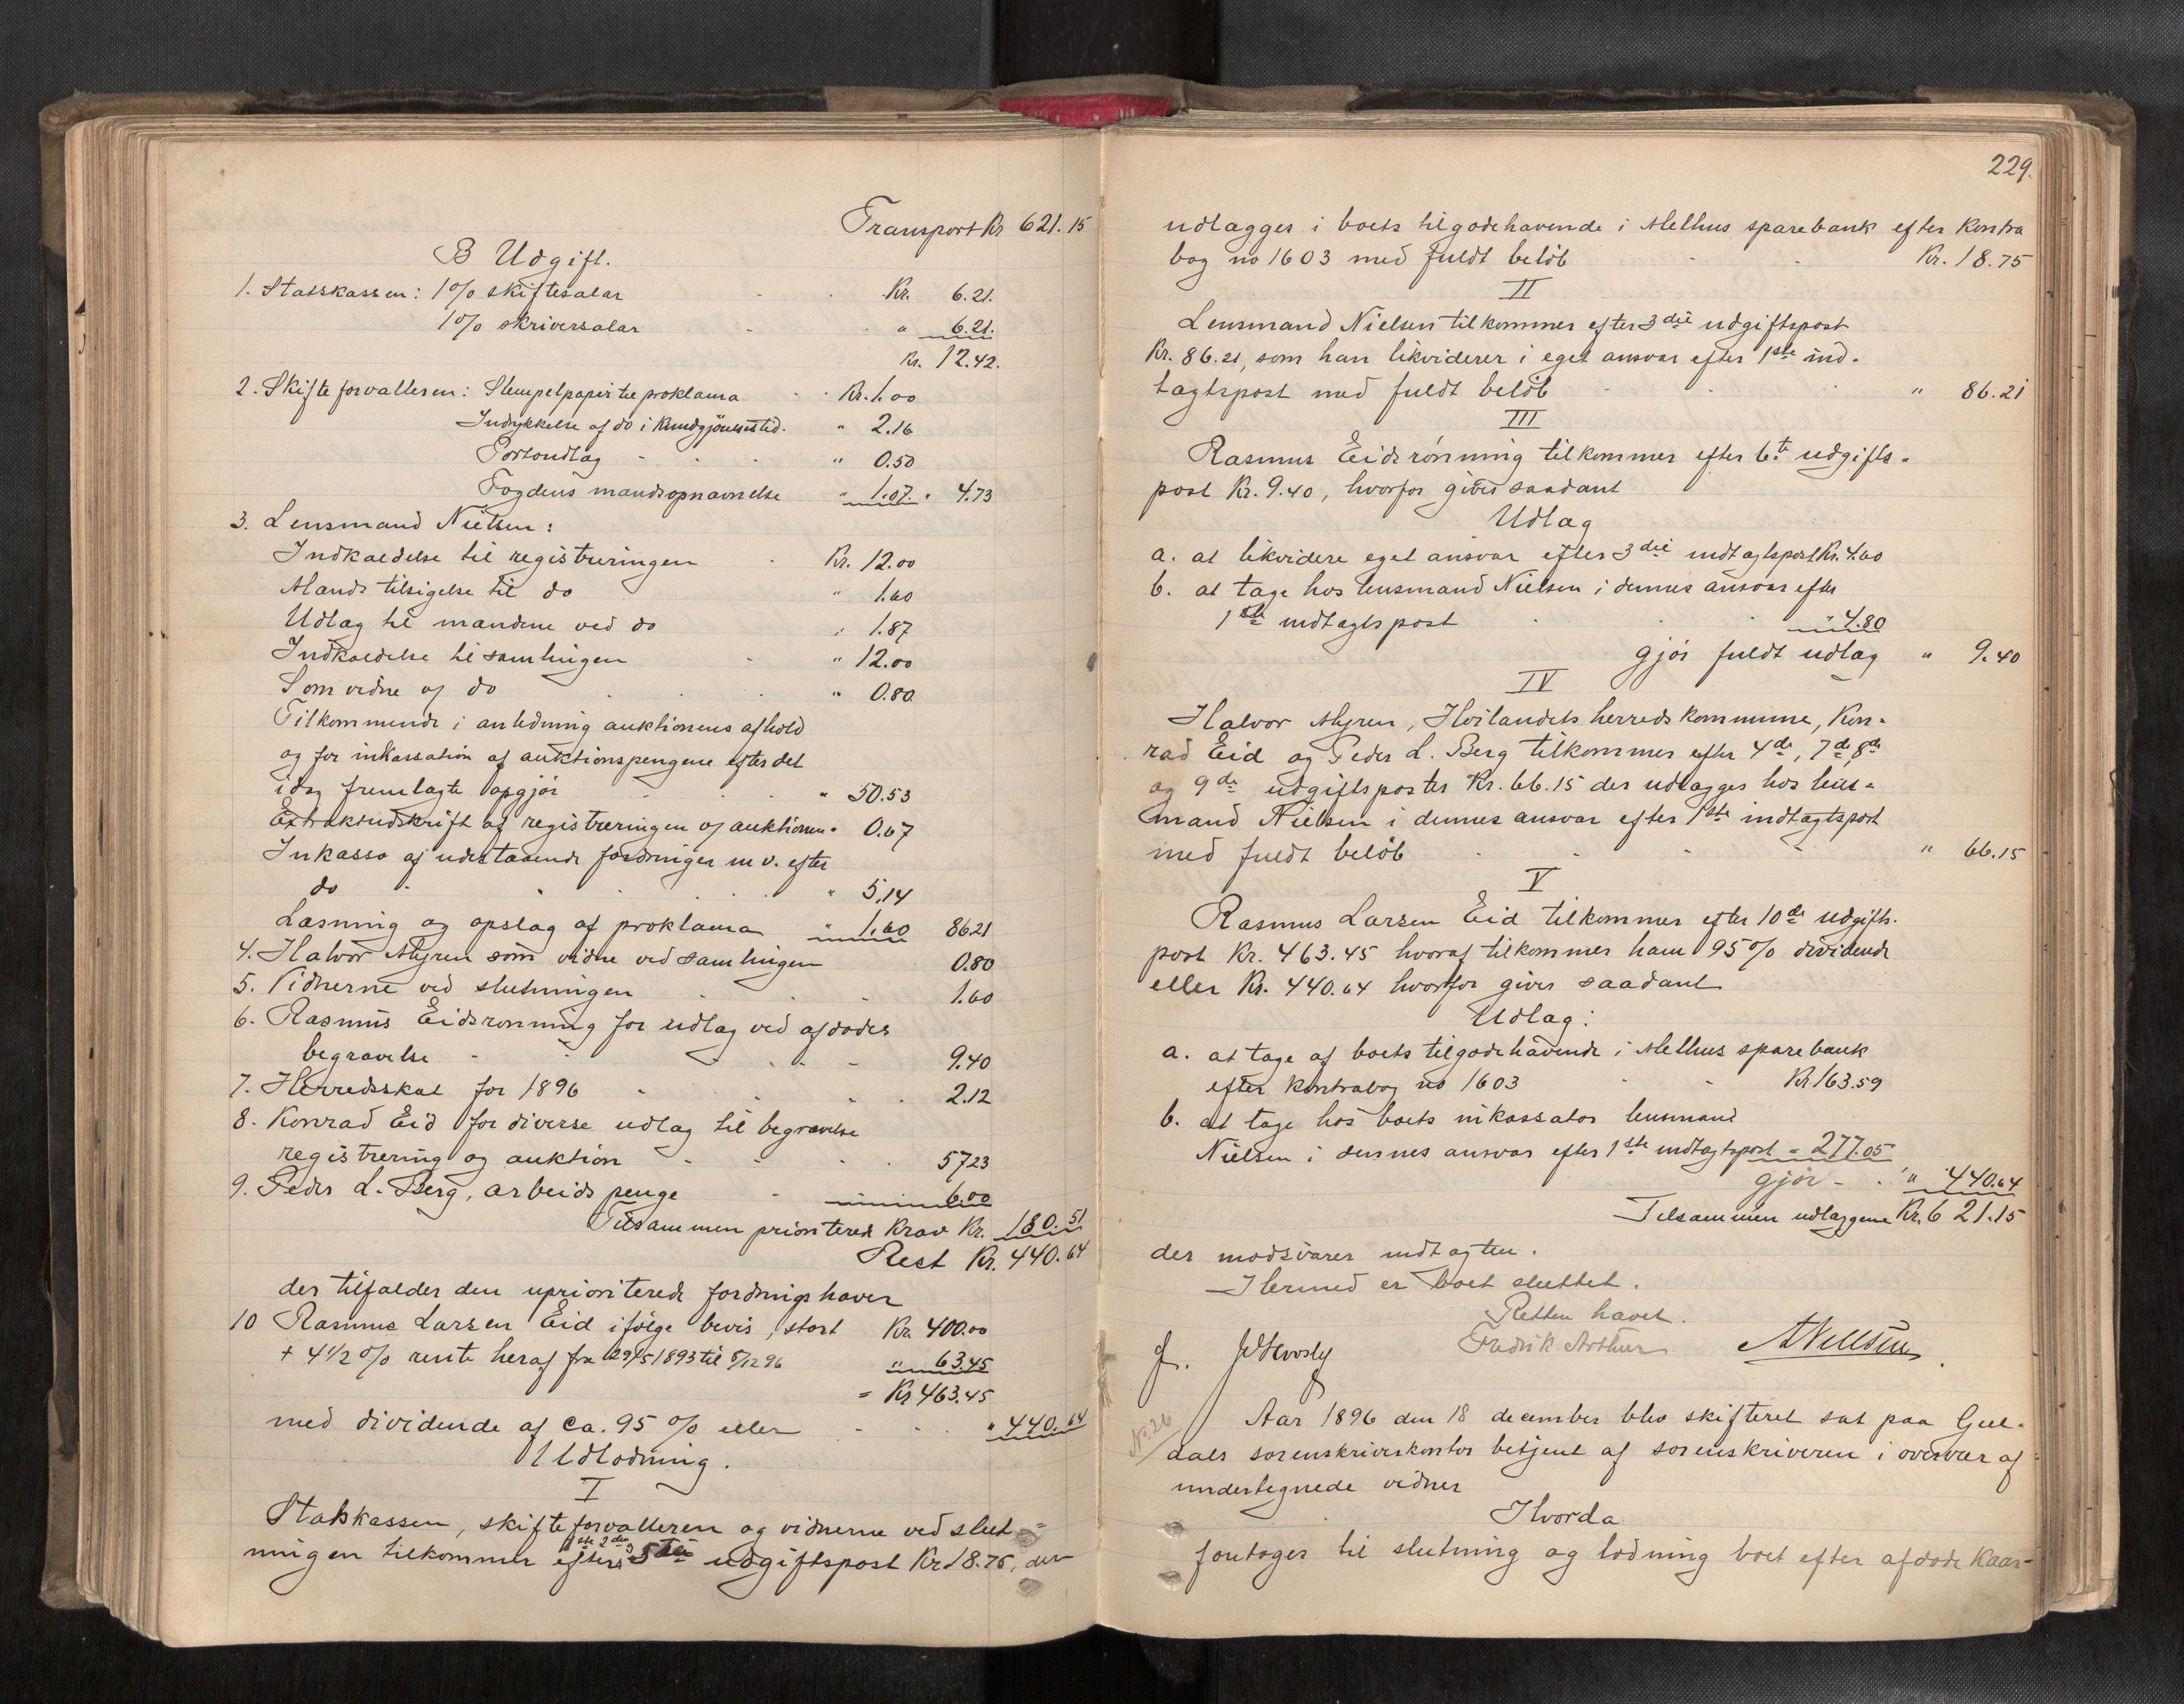 Transport Kr 621.15
B Udgift.
1. Statskassen: 1% skiftesalar Kr. 6.21.
1% skriversalar " 6.21.
Kr. 12.42.
2. Skifteforvalteren: Stempelpapir til proklama Kr. 1.00
Indrykkelse af do i Kundgjörelsestid. " 2.16
Portoudlag " 0.50
Fogdens mandsopnævnelse " 1.07. " 4.73
3. Lensmand Nielsen:
Indkaldelse til registreringen Kr. 12.00
Mands tilsigelse til do " 1.60
Udlæg til mændene ved do " 1.87
Indkaldelse til samlingen " 12.00
Som vidne af do " 0.80
Tilkommende i anledning auktionens afhold
og for inkassation af auktionspengene efter det
idag fremlagte opgjör " 50.53
Extraktudskrift af registreringen og auktionen " 0.67
Inkasso af udestaaende fordringer m v. efter
do " 5.14
Læsning og opslag af proklama " 1.60 86.21
4. Halvor Myren som vidne ved samlingen 0.80
5. Vidnerne ved slutningen 1.60
6. Rasmus Eidsrönning for udlæg ved afdødes
begravelse 9.40
7. Herredsskat for 1896 2.12
8. Konrad Eid for diverse udlæg til begravelse
registrering og auktion 57.23
9. Peder L. Berg, arbeidspenge 6.00
Tilsammen prioriterede krav Kr. 180.51
Rest Kr. 440.64
der tilfalder den uprioriterede fordringshaver
10 Rasmus Larsen Eid ifölge bevis, stort Kr. 400.00
+ 4 1/2 % rente heraf fra 29/5 1893 til 5/12 96 " 63.45
= Kr 463.45
med dividende af ca. 95 % eller " 440.64
Udlodning.
I
Statskassen, skifteforvalteren og vidnerne ved slut-
1ste 2den
ningen tilkommer efter 5te udgiftspost Kr 18.75, der
229.
udlægges i boets tilgodehavende i Melhus sparebank efter Kontra
bog no 1603 med fuldt belöb Kr. 18.75
II
Lensmand Nielsen tilkommer efter 3die udgiftspost
Kr. 86.21, som han likviderer i eget ansvar efter 1ste ind-
tægtspost med fuldt belöb " 86.21
III
Rasmus Eidsrönning tilkommer efter 6te udgifts-
post Kr. 9.40, hvorfor gives saadant
Udlæg
a. at likvidere eget ansvar efter 3die indtægtspost Kr. 4.60
b. at tage hos lensmand Nielsen i dennes ansvar efter
1ste indtægtspost " 4.80
gjör fuldt udlæg " 9.40
IV
Halvor Myren, Hölandets herreds kommune, Kon-
rad Eid og Peder L. Berg tilkommer efter 4de, 7de, 8de
og 9de udgiftsposter Kr. 66.15 der udlægges hos lens-
mand Nielsen i dennes ansvar efter 1ste indtægtspost
med fuldt belöb " 66.15
V
Rasmus Larsen Eid tilkommer efter 10de udgifts-
post Kr. 463.45 hvoraf tilkommer ham 95% dividende
eller Kr. 440.64 hvorfor gives saadant
Udlæg:
a. at tage af boets tilgodehavende i Melhus sparebank
efter kontrabog no 1603 Kr 163.59
b. at tage hos boets inkassator lensmand
Nielsen i dennes ansvar efter 1ste indtægtspost " 277.05
gjör " 440.64
Tilsammen udlæggene Kr. 621.15
der modsvarer indtægten.
Hermed er boet sluttet.
Retten hævet.
Fredrik Arthur A Nellsen
No. 26
Aar 1896 den 18 december blev skifteret sat paa Gul-
dals sorenskriverkontor betjent af sorenskriveren i overvær af
undertegnede vidner
Hvorda
foretoges til slutning og lodning boet efter afdöde Kaar-